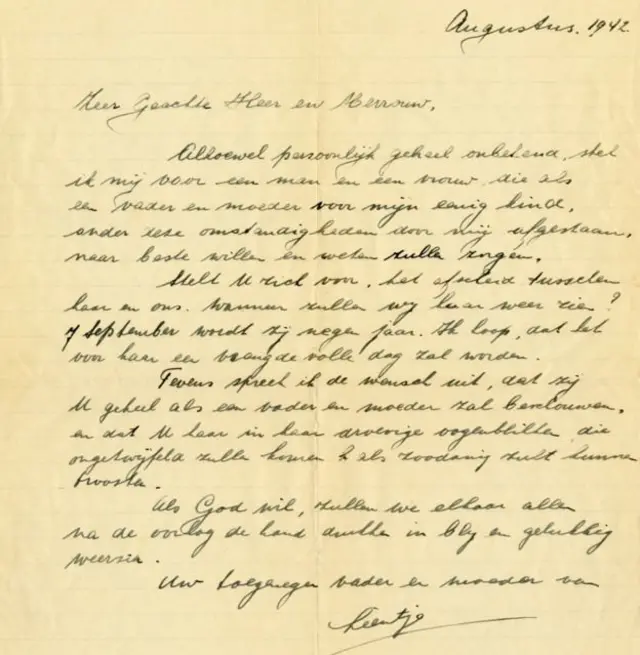 Augustus. 1942
Zeer Geachte Heer en Mevrouw,
Alhoewel persoonlijk geheel onbekend, stel
ik mij voor een man en een vrouw, die als
een vader en moeder voor mijn eenig kind,
onder deze omstandigheden door mij afgestaan,
naar beste willen en weten zullen zorgen.
Stelt U zich voor, het afscheid tusschen
haar en ons. Wanneer zullen wij haar weer zien?
7 September wordt zij negen jaar. Ik hoop, dat het
voor haar een vreugde volle dag zal worden.
Tevens spreek ik de wensch uit, dat zij
U geheel als een vader en moeder zal beschouwen,
en dat U haar in haar droevige oogenblikken die
ongetwijfeld zullen komen als zoodanig zult kunnen
troosten.
Als God wil, zullen we elkaar allen
na de oorlog de hand drukken in blij en gelukkig
weerzien.
Uw toegenegen vader en moeder van
Leentje